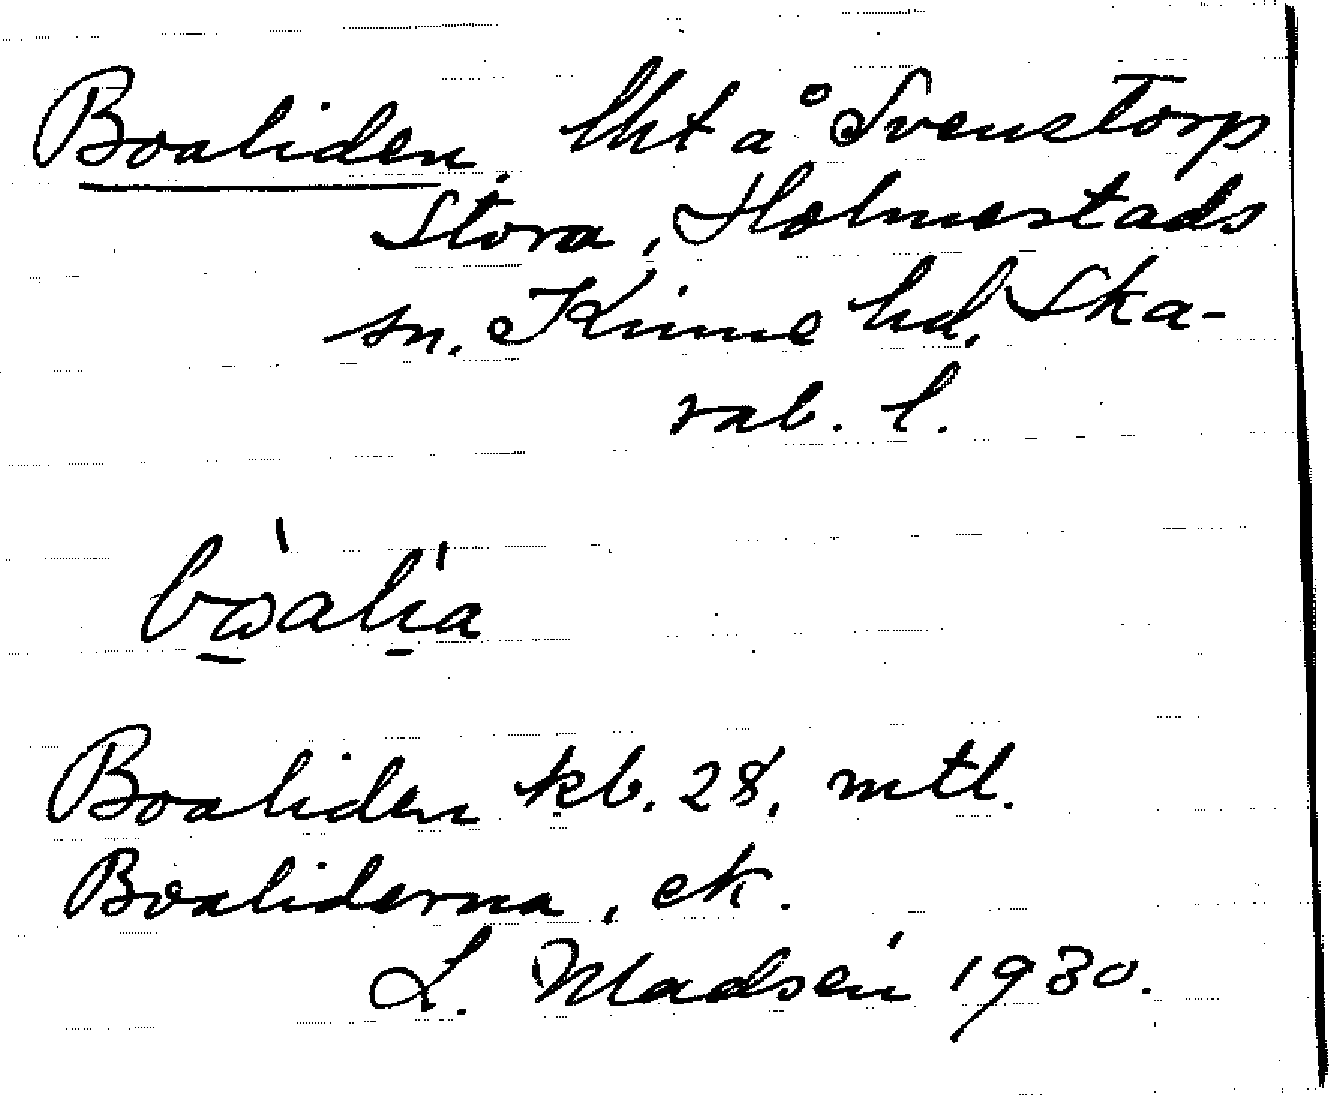 Boaliden, lht å Svenstorp
Stora, Holmestads
sn. Kinne hd. Ska-
rab. l.
Boaliden kb. 28, mtl.
Boaliderna, ek.
L. Madsén 1930.